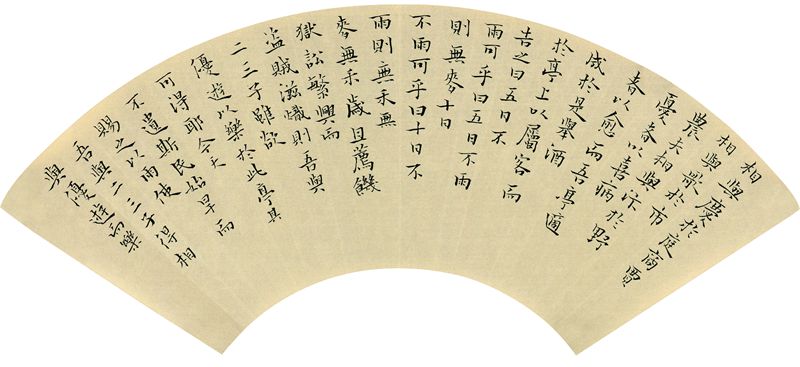 相與慶於庭商賈
相與歌於市
農夫相與忭於野
憂者以喜病
者以愈而吾亭適
成於是舉酒
於亭上以屬客而
告之曰五日不
雨可乎曰五日不雨
則無麥十日
不雨可乎曰十日不
雨則無禾無
麥無禾歲且薦饑
獄訟繁興而
盜賊滋熾則吾與
二三子雖欲
優遊以樂於此亭其
可得耶今天
不遺斯民始旱而
賜之以雨使
吾與二三子得相
與優遊而樂